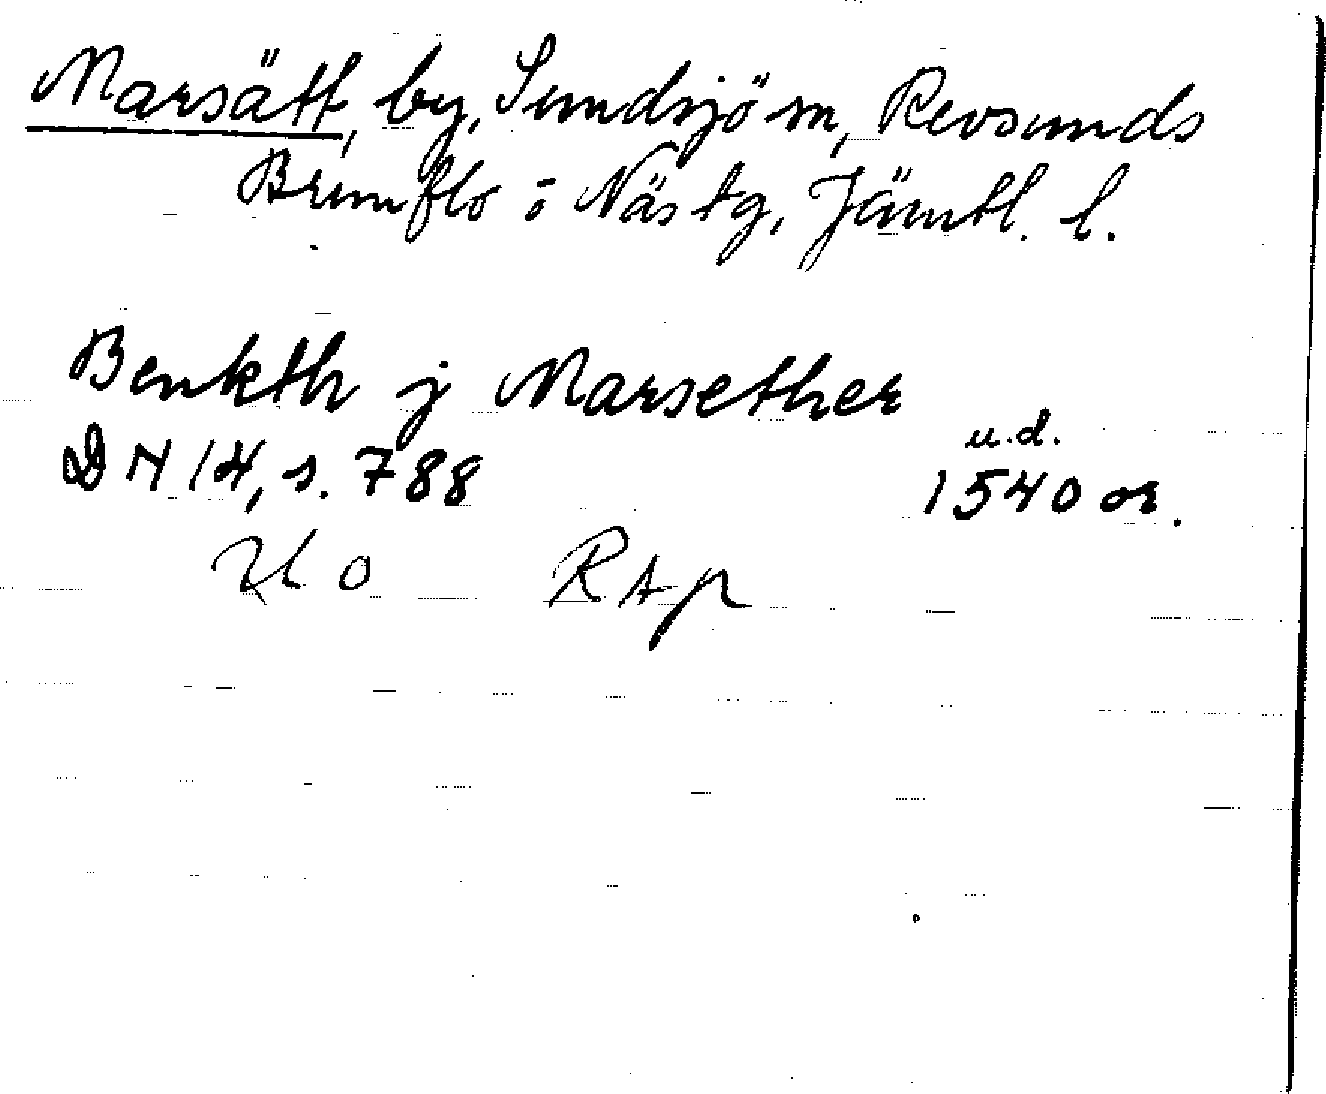 Marsätt, by, Sundsjö sn, Revsunds
Brunflo o Näs tg, Jämtl. l.
Benkth j Marsether
u.d.
DN 14, s. 788 1540 or.
Or